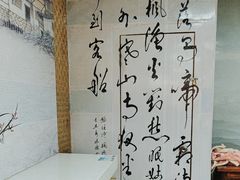 落乌啼霜满
枫渔火对愁眠姑
外寒山寺夜半
到客船